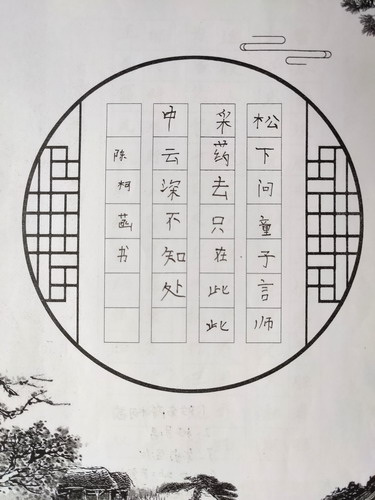 松下问童子言师
采药去只在此此
中云深不知处
陈柯菡书